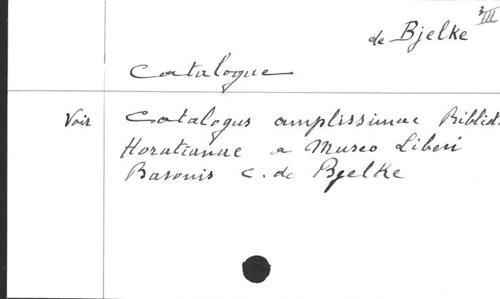 de Bjelke
3 III
Catalogue
Voir Catalogus amplissimae Bibliot
Horatianae a Museo Liberi
Baronis C. de Bjelke